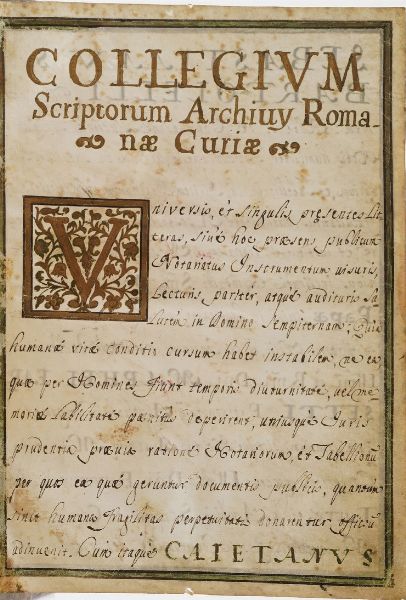 COLLEGIVM
Scriptorum Archiuy Roma-
næ Curiæ
Vniversis, et singulis præsentes Lit-
teras, siue hoc præsens publicum
Notariatus Instrumentum uisuris,
Lecturis pariter, atque audituris Sa-
lutem in Domino Sempiternam. Quia
humanæ vitæ conditio cursum habet instabilem, ne ea
quæ per Homines fiunt temporis diuturnitate, uel me-
moriæ labilitate pœnitus deperirent, uniusque Juris
prudentia præuia ratione Notariorum, et Tabellionum
per quos ea quæ geruntur documentis publicis, quantum
sinit humana fragilitas perpetuitati donarentur officium
adinuenit. Cum itaque CAIETANVS